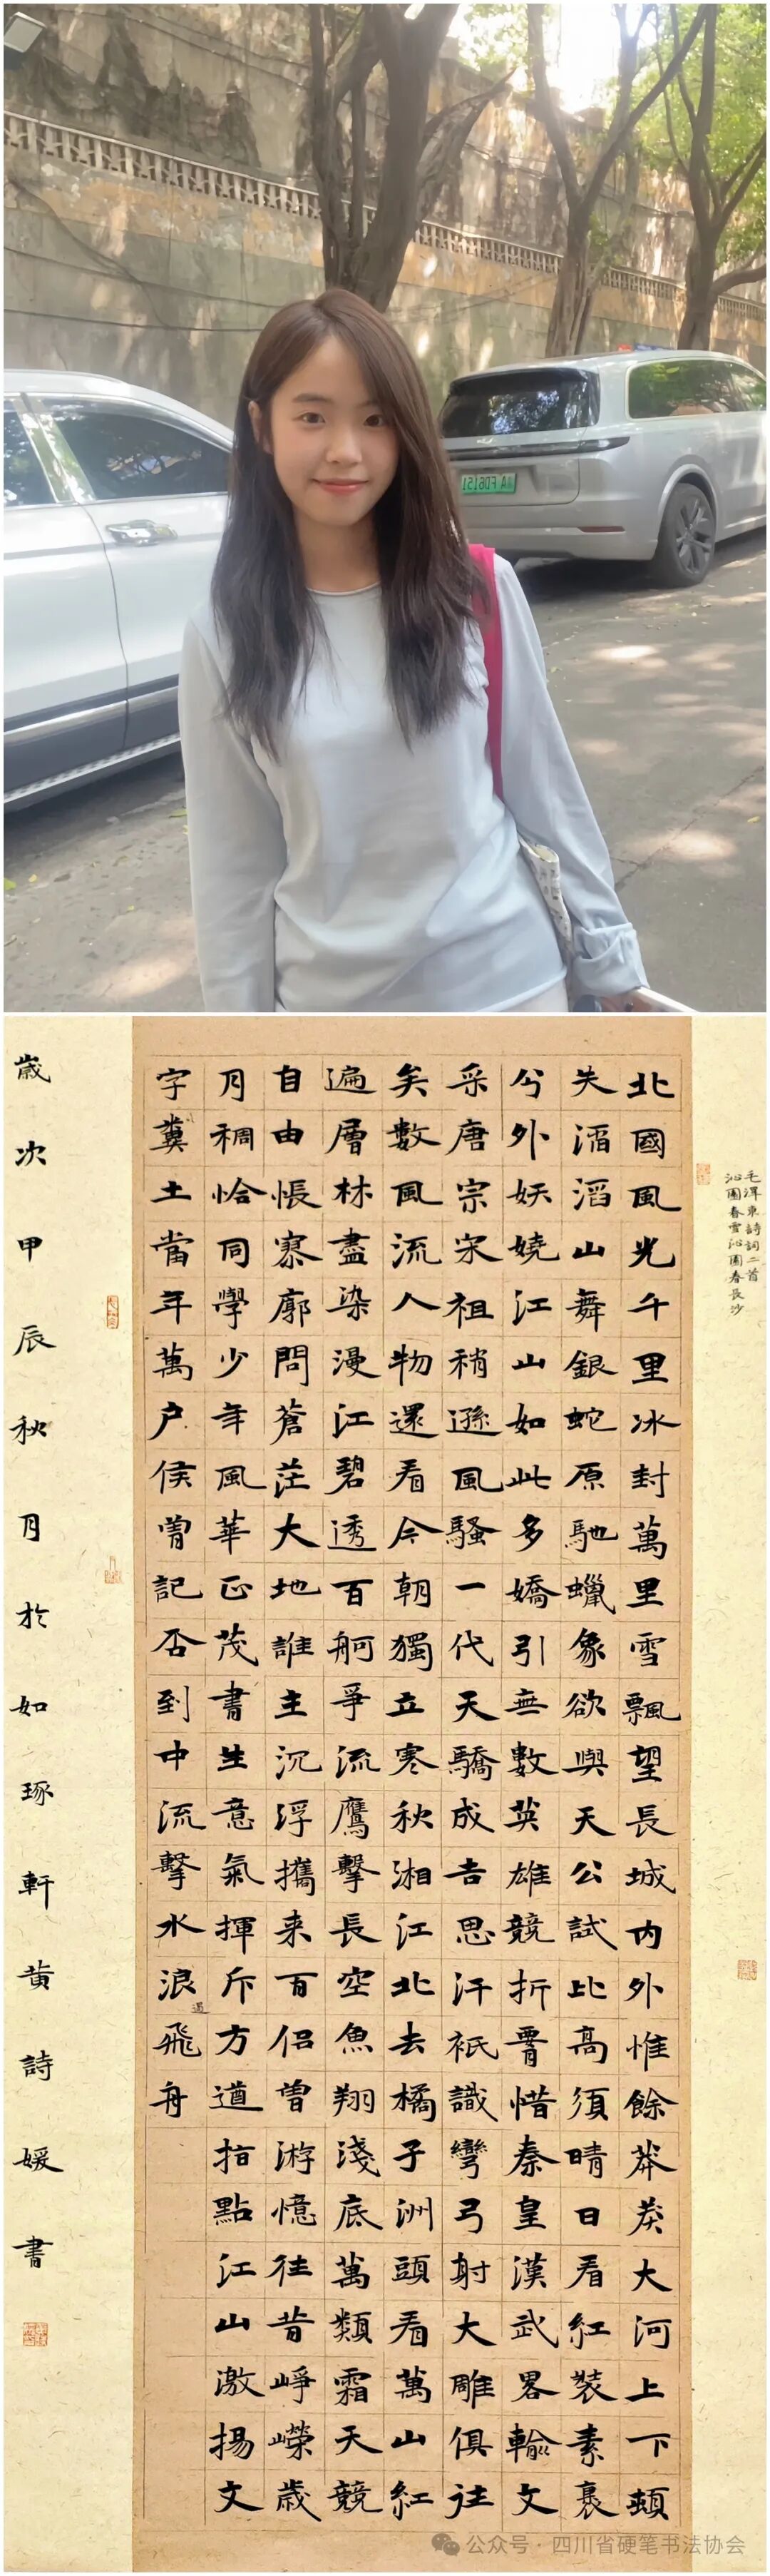 A FD6151
毛澤東詩詞二首
沁園春雪沁園春長沙
北國風光千里冰封萬里雪飄望長城内外惟餘莽莽大河上下頓
失滔滔山舞銀蛇原馳蠟象欲與天公試比高須晴日看紅裝素裹
分外妖嬈江山如此多嬌引無數英雄競折腰惜秦皇漢武畧輸文
采唐宗宋祖稍遜風騷一代天驕成吉思汗祇識彎弓射大雕俱往
矣數風流人物還看今朝獨立寒秋湘江北去橘子洲頭看萬山紅
遍層林盡染漫江碧透百舸爭流鷹擊長空魚翔淺底萬類霜天競
自由悵寥廓問蒼茫大地誰主沉浮攜来百侣曾游憶往昔崢嶸歲
月稠恰同學少年風華正茂書生意氣揮斥方遒指點江山激揚文
字糞土當年萬户侯曾記否到中流擊水浪遏飛舟
歲次甲辰秋月於如琢軒黄詩媛書
公众号·四川省硬笔书法协会